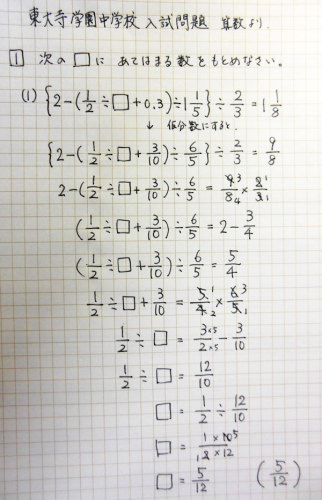 東大寺学園中学校 入試問題 算数より.
1 次の□に あてはまる数をもとめなさい。
(1) {2-(1/2÷□+0.3)÷1 1/5}÷2/3=1 1/8
↓ 仮分数にすると.
{2-(1/2÷□+3/10)÷6/5}÷2/3=9/8
2-(1/2÷□+3/10)÷6/5=9 3/8 4×2 1/3 1
(1/2÷□+3/10)÷6/5=2-3/4
(1/2÷□+3/10)÷6/5=5/4
1/2÷□+3/10=5 1/4 2×6 3/5 1
1/2÷□=3×5/2×5-3/10
1/2÷□=12/10
□=1/2÷12/10
□=1×10 5/2×12
□=5/12 (5/12)